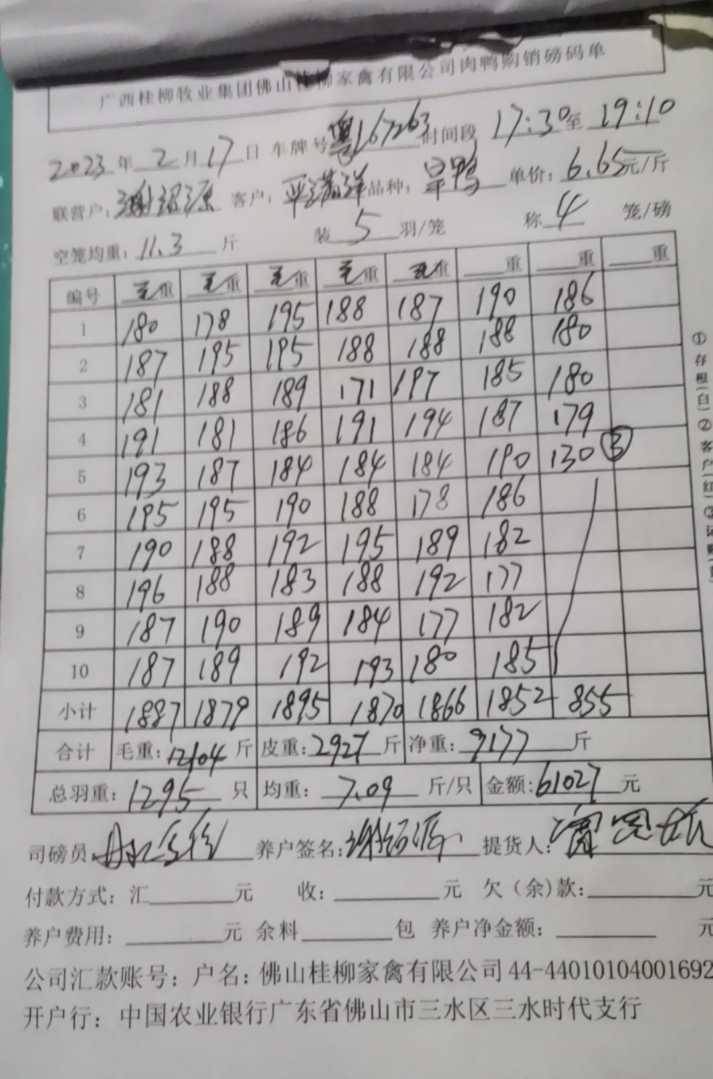 广西桂柳牧业集团佛山桂柳家禽有限公司肉鸭购销磅码单
2023年2月17日 车牌号 粤167263 时间段 17:30至19:10
联营户: 谢绍源 客户: 品种: 旱鸭 单价: 6.65元/斤
空笼均重: 11.3 斤 装 5 羽/笼 称 4 笼/磅
编号 毛重 毛重 毛重 毛重 毛重 重 重 重
1 180 178 195 188 187 190 186
2 187 195 195 188 188 188 180
3 181 188 189 171 197 185 180
4 191 181 186 191 194 187 179
5 193 187 184 184 184 190 130 ③
6 195 195 190 188 178 186
7 190 188 192 195 189 182
8 196 188 183 188 192 177
9 187 190 189 184 177 182
10 187 189 192 193 180 185
小计 1887 1879 1895 1870 1866 1852 855
合计 毛重: 12104 斤 皮重: 2927 斤 净重: 9177 斤
总羽重: 1295 只 均重: 7.09 斤/只 金额: 61027 元
司磅员: 养户签名: 谢绍源 提货人:
付款方式: 汇 元 收: 元 欠(余)款: 元
养户费用: 元 余料 包 养户净金额: 元
公司汇款账号: 户名: 佛山桂柳家禽有限公司 44-44010104001692
开户行: 中国农业银行广东省佛山市三水区三水时代支行
①存根(白)②客户(红)③